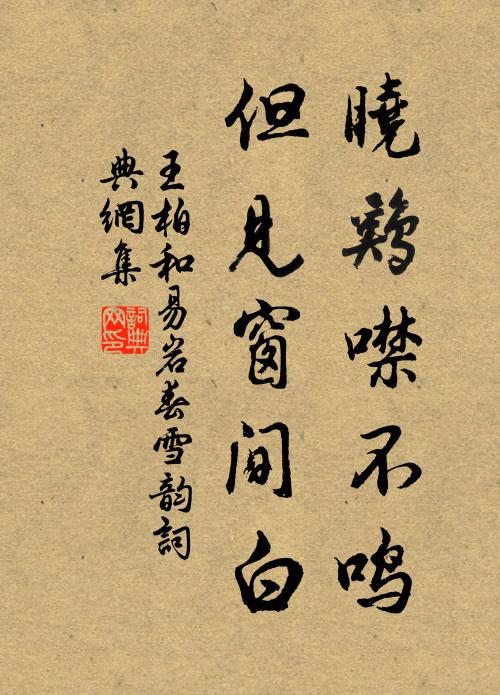 曉鷄噤不鳴
但見窗间白
王柏和易岩春雪韵詞
典網集
詞典
网印